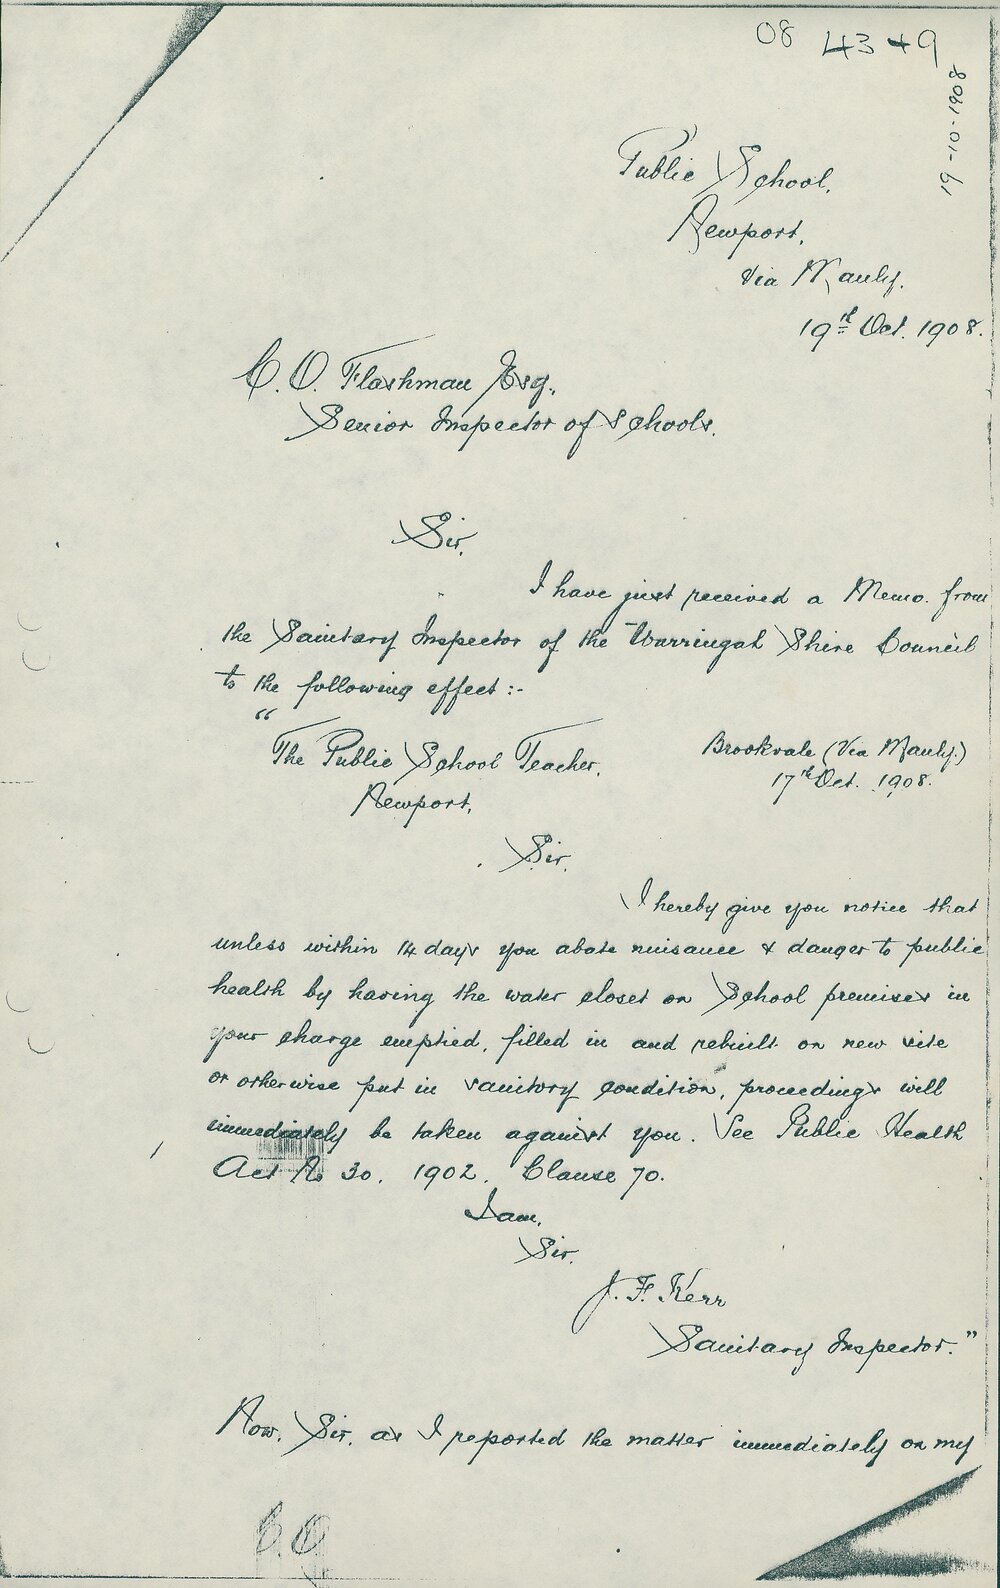 08 4349
19-10-1908
Public School,
Newport,
Via Manly.
19th Oct. 1908.
C. O. Flashman Esq.,
Senior Inspector of Schools.
Sir,
I have just received a Memo. from
the Sanitary Inspector of the Warringah Shire Council
to the following effect :-
"
The Public School Teacher,
Newport,
Brookvale (Via Manly.)
17th Oct. 1908.
Sir,
I hereby give you notice that
unless within 14 days you abate nuisance & danger to public
health by having the water closet on School premises in
your charge emptied, filled in and rebuilt on new site
or otherwise put in sanitory condition, proceedings will
immediately be taken against you. See Public Health
Act No 30. 1902. Clause 70.
I am,
Sir,
J. F. Kerr
Sanitary Inspector."
Now, Sir, as I reported the matter immediately on my
C. O